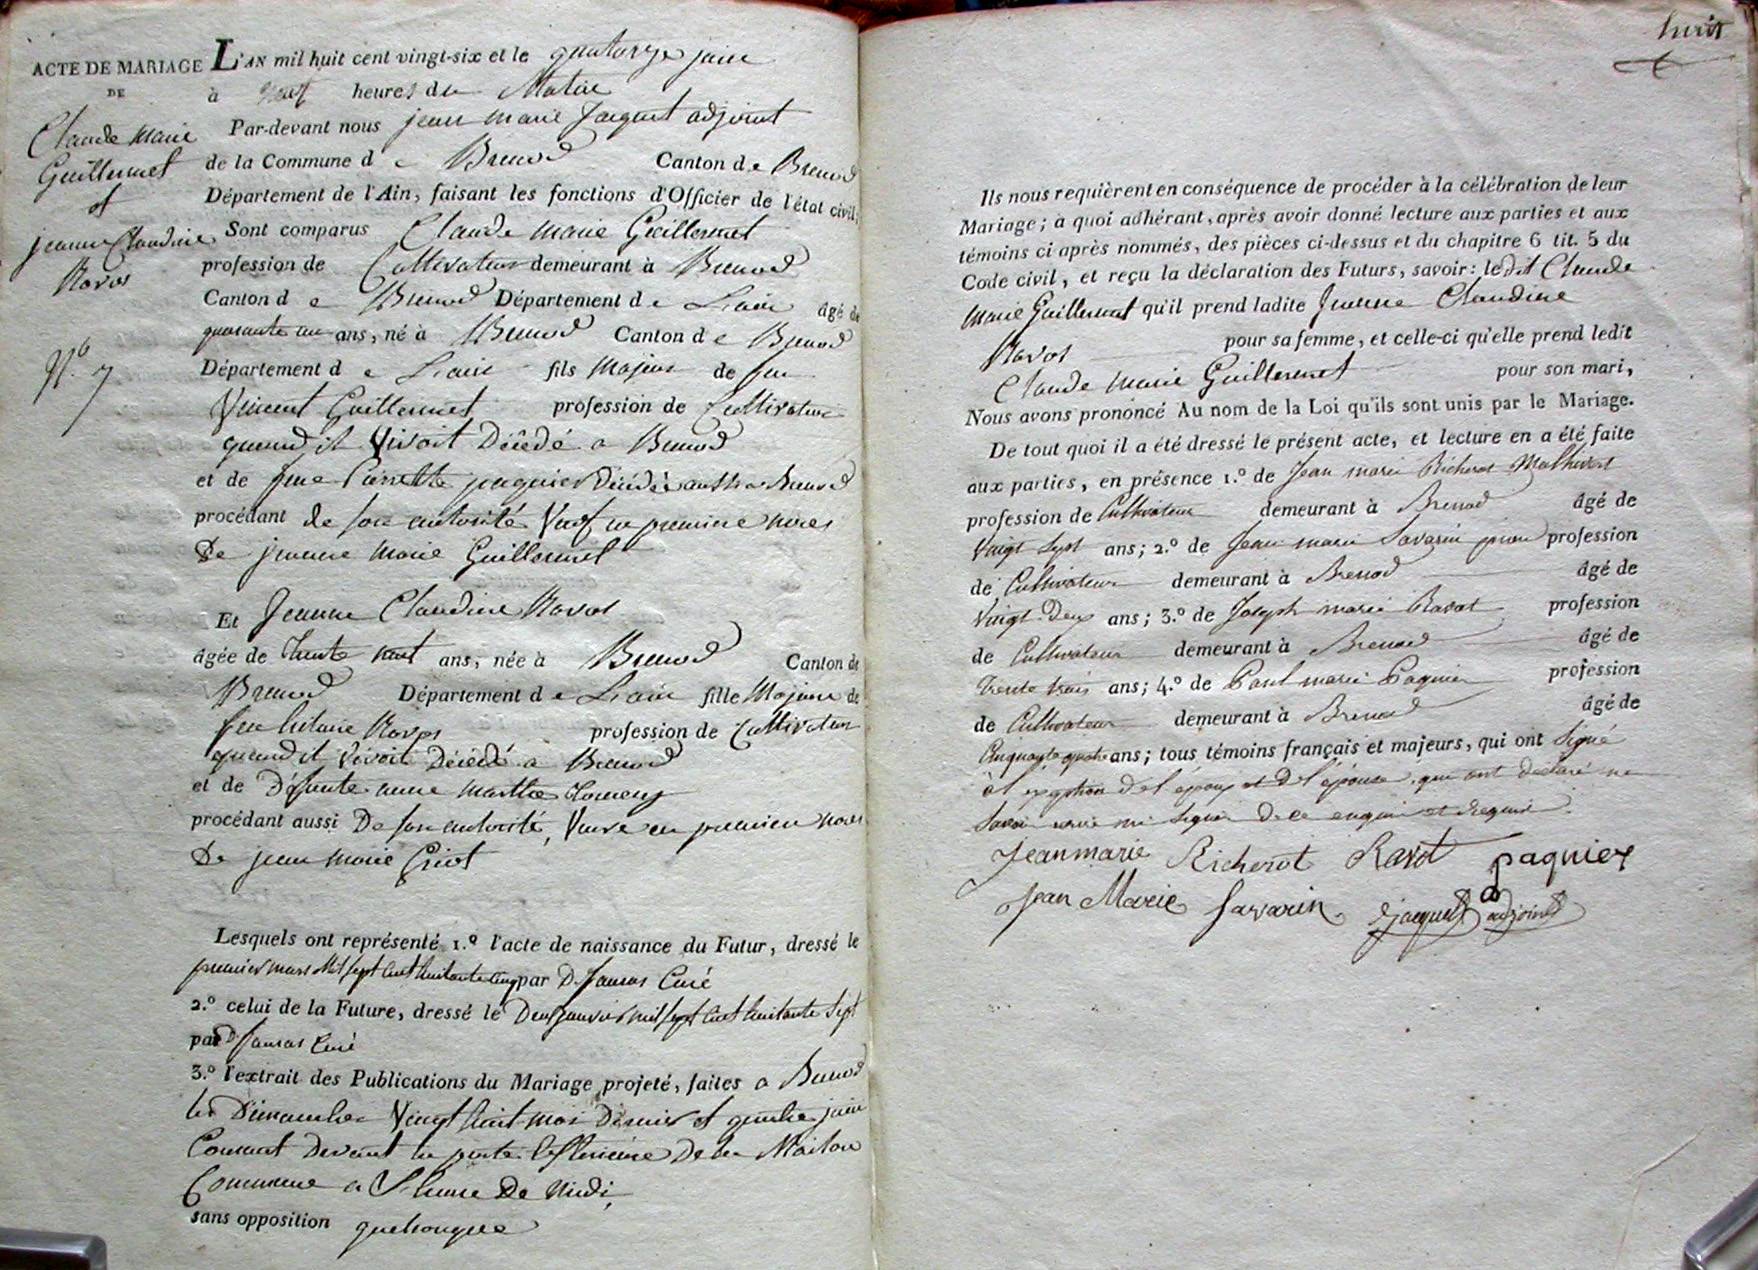 ACTE DE MARIAGE
DE
Claude Marie
Guillermet
et
jeanne Claudine
Ravot
N.º 7
L'AN mil huit cent vingt-six et le quatorze juin
à neuf heures du Matin
Par-devant nous jean marie Jacquet adjoint
de la Commune de Brenod Canton de Brenod
Département de l'Ain, faisant les fonctions d'Officier de l'état civil;
Sont comparus Claude Marie Guillermet
profession de Cultivateur demeurant à Brenod
Canton de Brenod Département de L'ain âgé de
quarante un ans, né à Brenod Canton de Brenod
Département de L'ain fils Majeur de feu
Vincent Guillermet profession de Cultivateur
quand il Vivoit Décédé a Brenod
et de feue Pierrette paquier Décédée aussi a Brenod
procédant de son autorité Veuf en premiere noces
De jeanne Marie Guillermet
Et Jeanne Claudine Ravot
âgée de Trente neuf ans, née à Brenod Canton de
Brenod Département de L'ain fille Majeure de
feu hilaire Ravot profession de Cultivateur
quand il Vivoit Décédé a Brenod
et de Défunte anne Marthe
procédant aussi De son autorité, Veuve en premiere noces
De jean Marie
Lesquels ont représenté 1.º l'acte de naissance du Futur, dressé le
premier mars Mil sept cent huitante cinq par D. Curé
2.º celui de la Future, dressé le Deux janvier mil sept cent huitante sept
par D. Curé
3.º l'extrait des Publications du Mariage projeté, faites a Brenod
les Dimanches Vingt huit mai Dernier et quatre juin
Courant Devant la porte De la Maison
Commune a L'heure De Midi,
sans opposition quelconque
huit
Ils nous requièrent en conséquence de procéder à la célébration de leur
Mariage; à quoi adhérant, après avoir donné lecture aux parties et aux
témoins ci après nommés, des pièces ci-dessus et du chapitre 6 tit. 5 du
Code civil, et reçu la déclaration des Futurs, savoir: ledit Claude
Marie Guillermet qu'il prend ladite Jeanne Claudine
Ravot pour sa femme, et celle-ci qu'elle prend ledit
Claude Marie Guillermet pour son mari,
Nous avons prononcé Au nom de la Loi qu'ils sont unis par le Mariage.
De tout quoi il a été dressé le présent acte, et lecture en a été faite
aux parties, en présence 1.º de Jean marie Richerot
profession de Cultivateur demeurant à Brenod âgé de
Vingt Sept ans; 2.º de Jean marie Savarin profession
de Cultivateur demeurant à Brenod âgé de
Vingt Deux ans; 3.º de Joseph marie Ravot profession
de Cultivateur demeurant à Brenod âgé de
Trente trois ans; 4.º de Paul marie Paquier profession
de Cultivateur demeurant à Brenod âgé de
Cinquante quatre ans; tous témoins français et majeurs, qui ont Signé
à l'exeption de l'époux et de l'épouse qui ont declaré ne
Savoir ni Signer de ce enquis et requis
Jean marie Richerot Ravot paquier
Jean Marie Savarin Jacquet adjoint